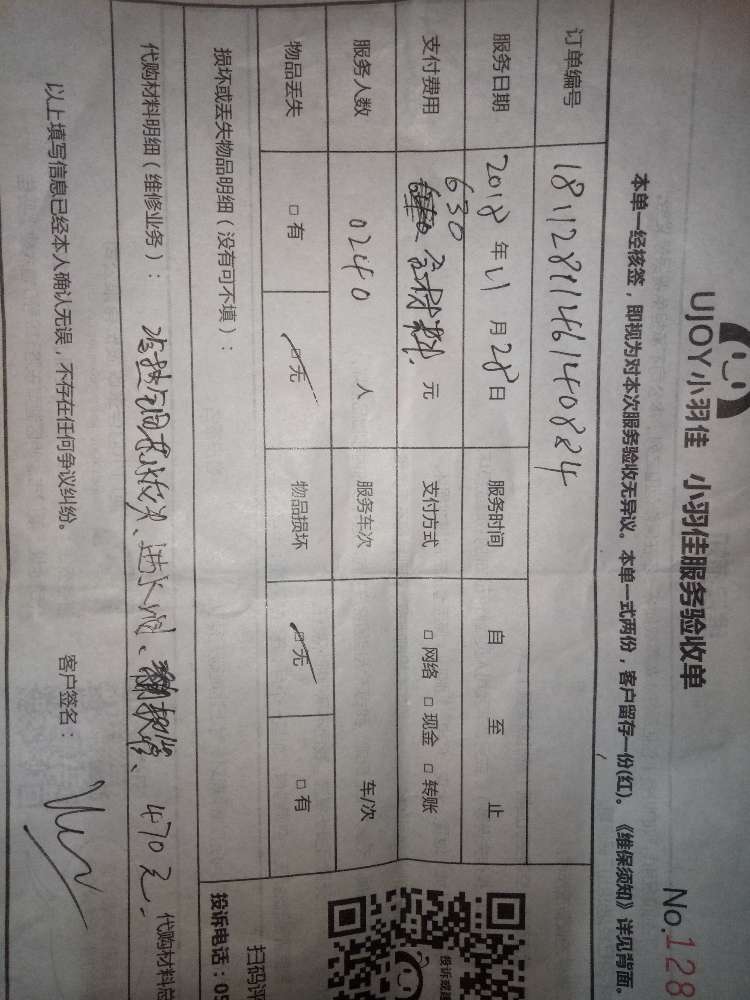 UJOY小羽佳 小羽佳服务验收单
No.128
本单一经核签，即视为对本次服务验收无异议。本单一式两份，客户留存一份(红)。《维保须知》详见背面。
订单编号 1811281146140884
服务日期 2018年11月28日 服务时间 自 至 止
支付费用 630 含材料. 元 支付方式 □网络 □现金 □转账
服务人数 0240 人 服务车次 车/次
物品丢失 □有 □无 物品损坏 □无 □有
损坏或丢失物品明细（没有可不填）：
代购材料明细（维修业务）： 进水阀、 470元. 代购材料总
以上填写信息已经本人确认无误，不存在任何争议纠纷。 客户签名：
投诉或建
扫码评
投诉电话：05